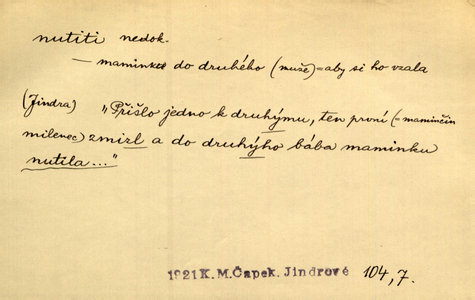 nutiti nedok.
— maminku do druhého (muže) = aby si ho vzala
(Jindra) „Přišlo jedno k druhýmu, ten první (= maminčin
milenec) zmizl a do druhýho bába maminku
nutila..."
1921 K. M. Čapek. Jindrové 104, 7.